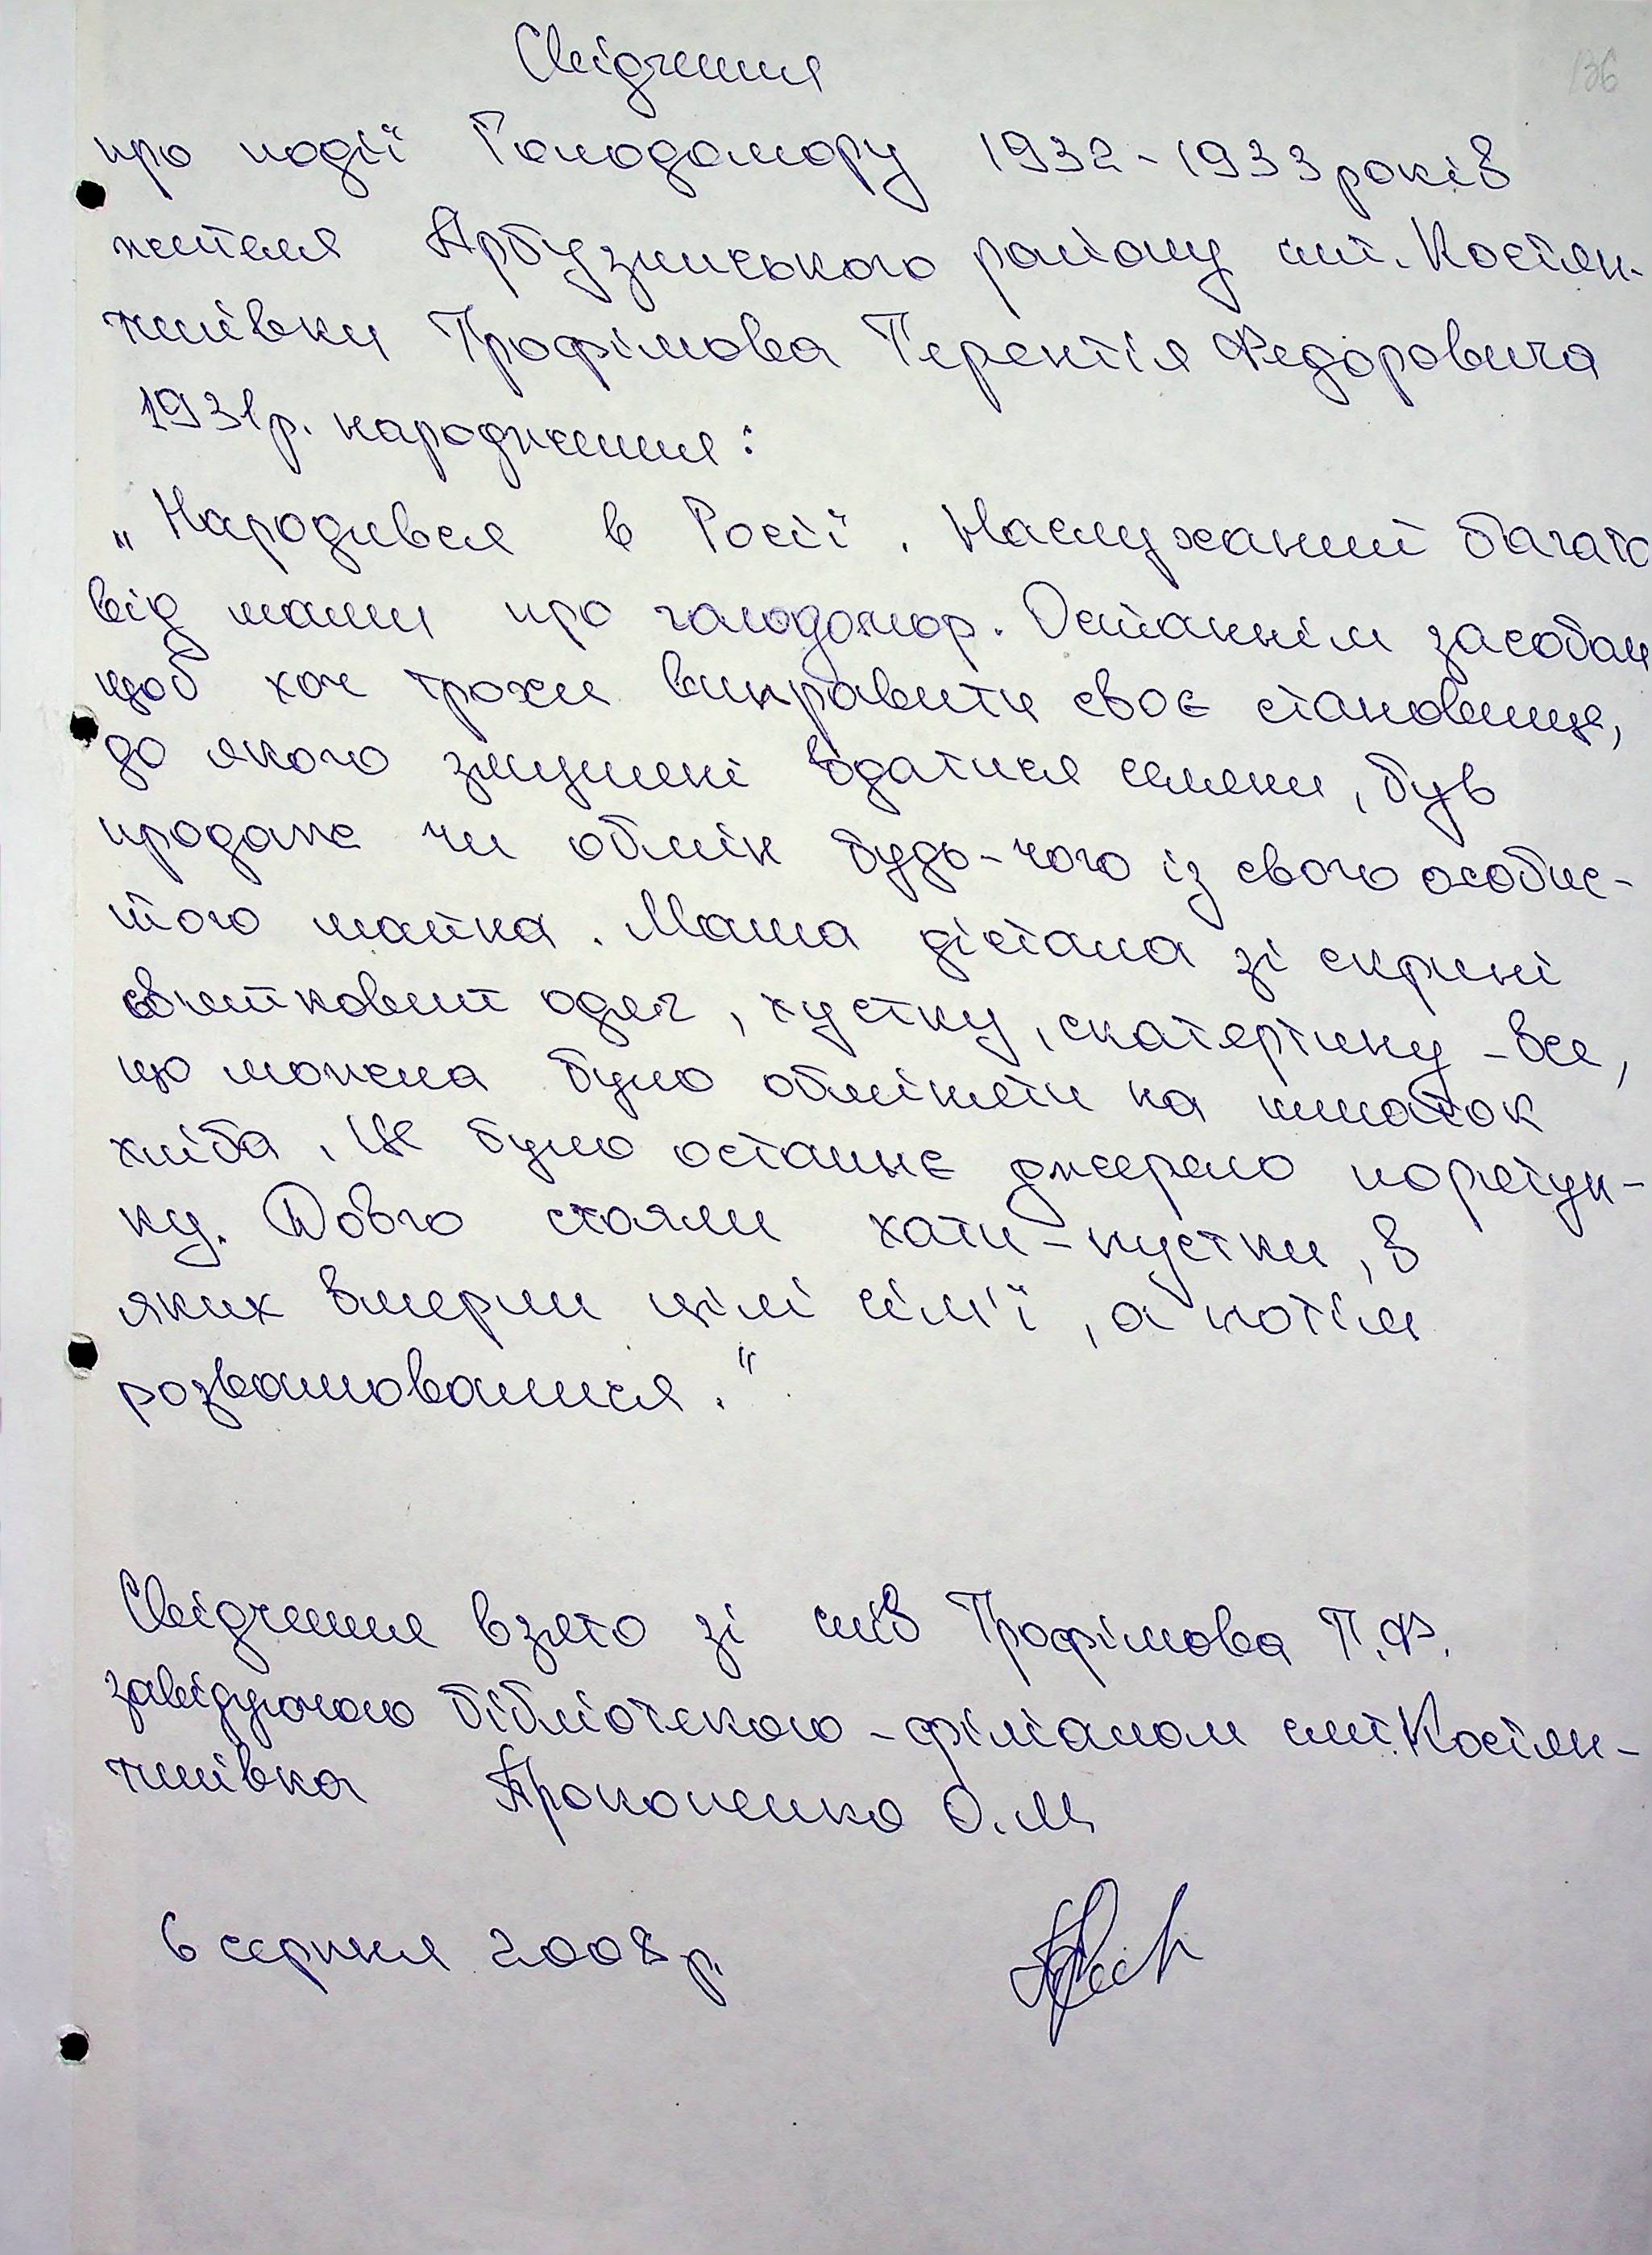 136
Свідчення
про події Голодомору 1932-1933 років
жителя Арбузинського району смт. Костян-
тинівки Трофімова Терентія Федоровича
1931р. народження:
„Народився в Росії. Наслуханий багато
від мами про голодомор. Останнім засобом
щоб хоч трохи виправити своє становище,
до якого змушені вдатися селяни, був
продаж чи обмін будь-чого із свого особис-
того майна. Мама дістала зі скрині
святковий одяг, хустку, скатертину - все,
що можна було обміняти на шматок
хліба. Це було останнє джерело порятун-
ку. Довго стояли хати-пустки, в
яких вмерли цілі сім'ї, а потім
розвалювалися."
Свідчення взято зі слів Трофімова Т.Ф.
завідуючою бібліотекою-філіалом смт. Костян-
тинівка Прокопенко О.М.
6 серпня 2008 р.